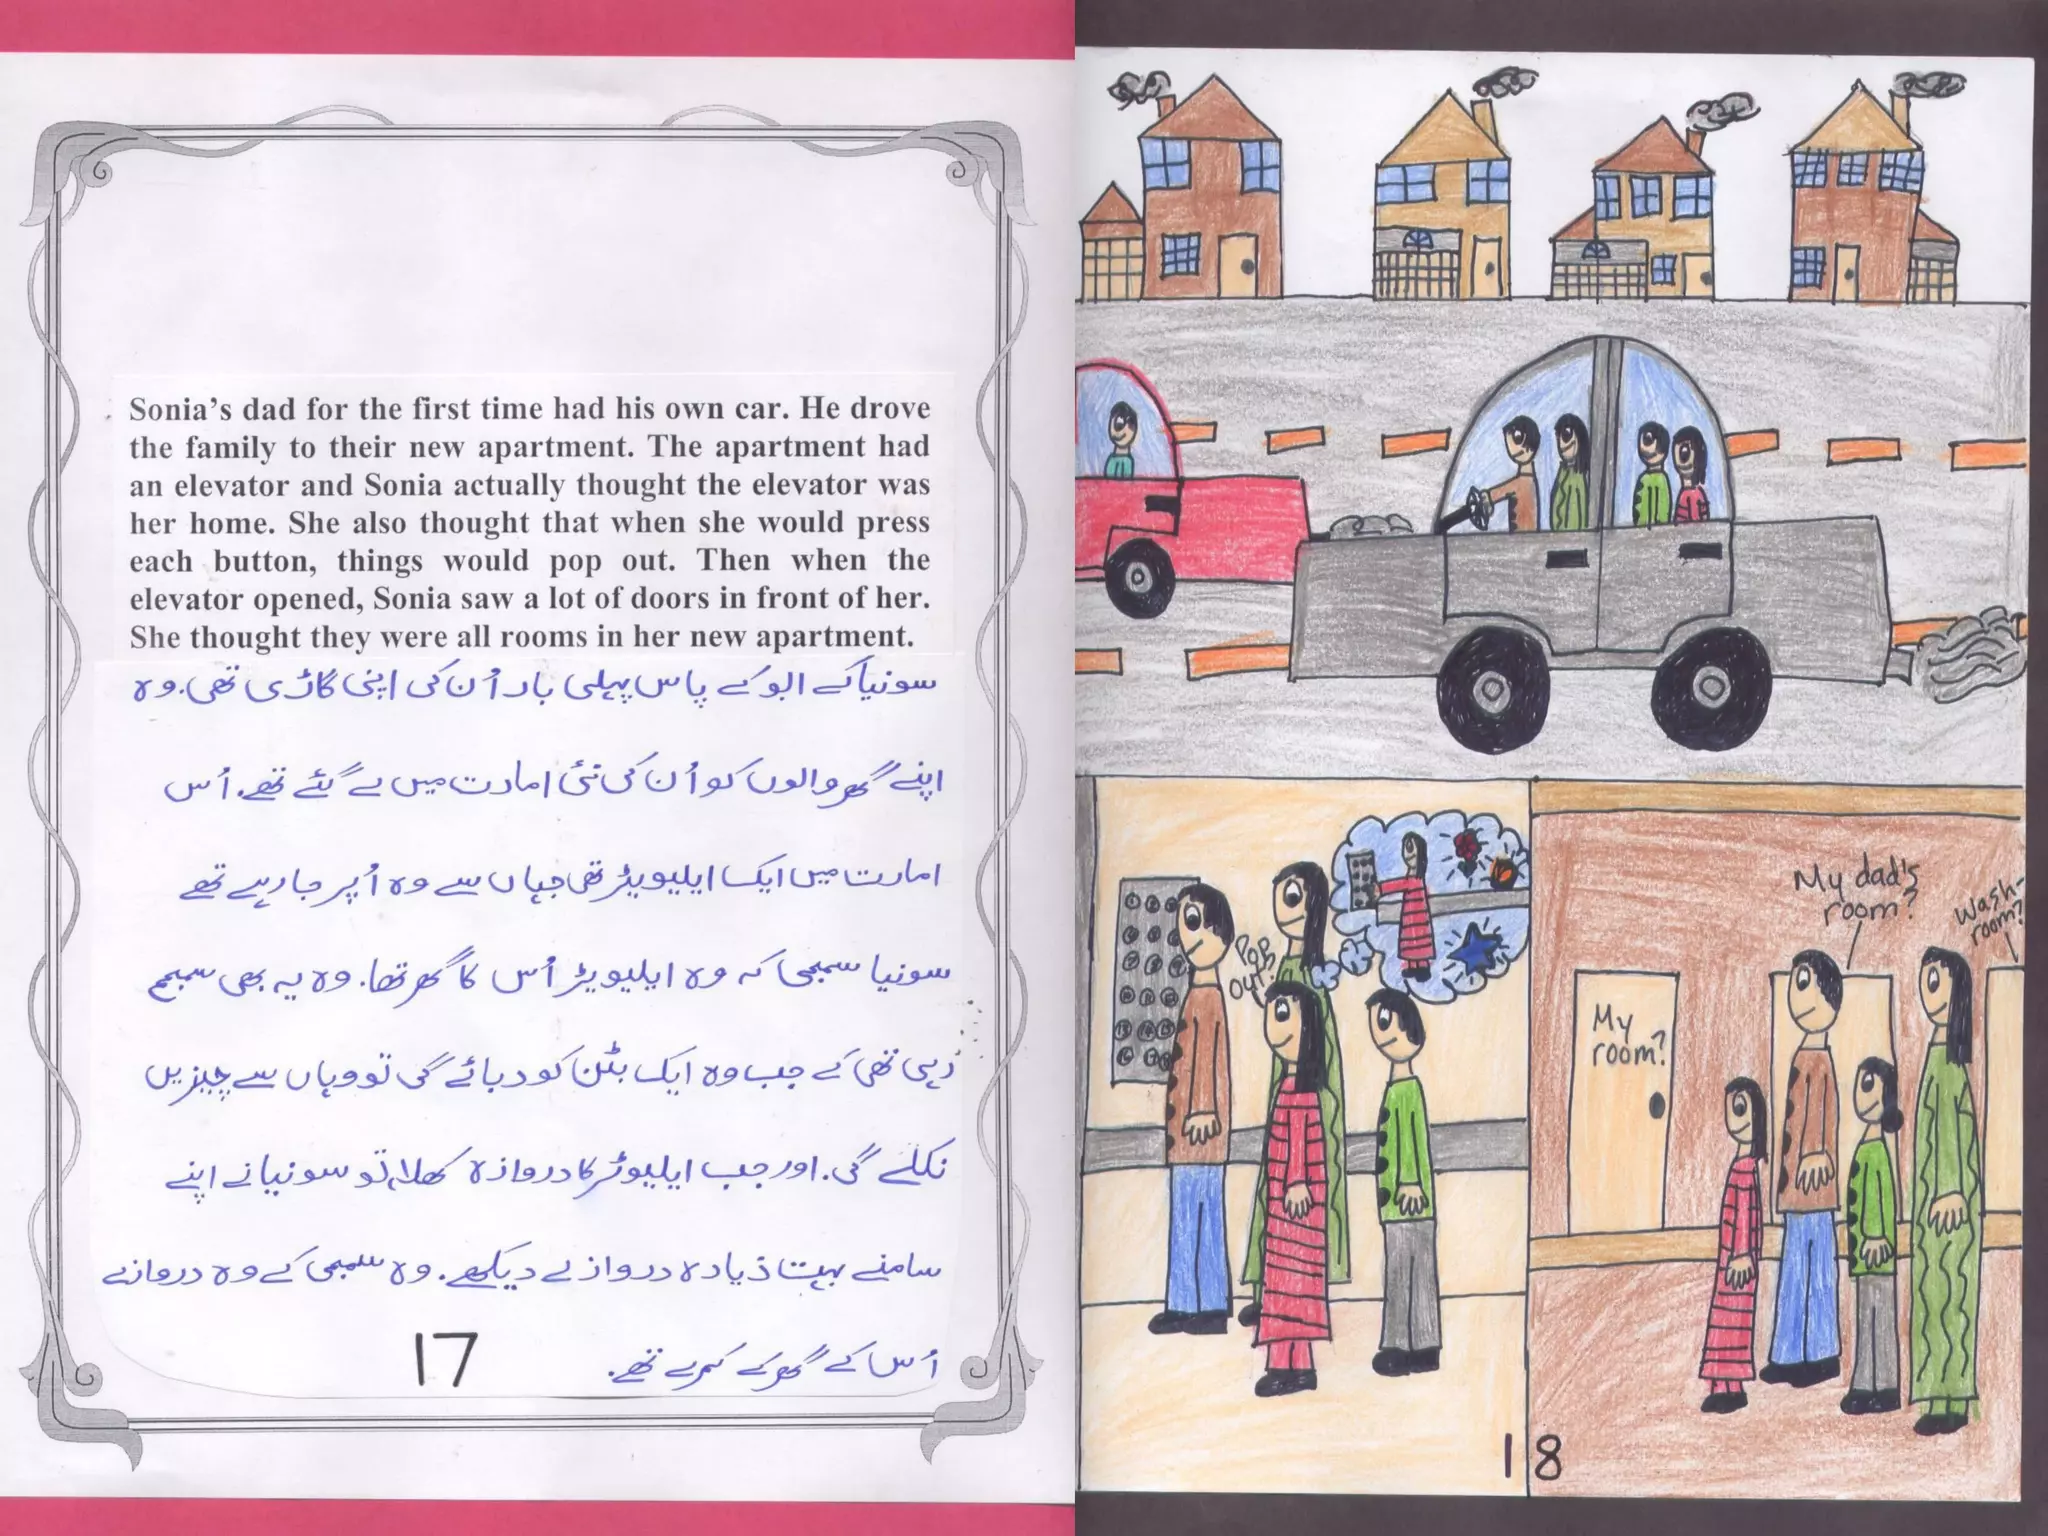 Sonia’s dad for the first time had his own car. He drove
the family to their new apartment. The apartment had
an elevator and Sonia actually thought the elevator was
her home. She also thought that when she would press
each button, things would pop out. Then when the
elevator opened, Sonia saw a lot of doors in front of her.
She thought they were all rooms in her new apartment.
سونیا کے ابو کے پاس پہلی بار اُن کی اپنی گاڑی تھی۔ وہ
اپنے گھر والوں کو اُن کی نئی امارت میں لے گئے تھے۔ اُس
امارت میں ایک ایلیویٹر تھی جہاں سے وہ اُپر جا رہے تھے
سونیا سمجی کہ وہ ایلیویٹر اُس کا گھر تھا۔ وہ یہ بھی سمجھ
رہی تھی کے جب وہ ایک بٹن کو دبائے گی تو وہاں سے چیزیں
نکلے گی۔ اور جب ایلیوٹر کا دروازہ کھلا، تو سونیا نے اپنے
سامنے بہت ذیادہ دروازے دیکھے۔ وہ سمجی کے وہ دروازے
اُس کے گھر کے کمرے تھے۔
17
Pop
out?
My
room?
My dad's
room?
Wash-
room?
18